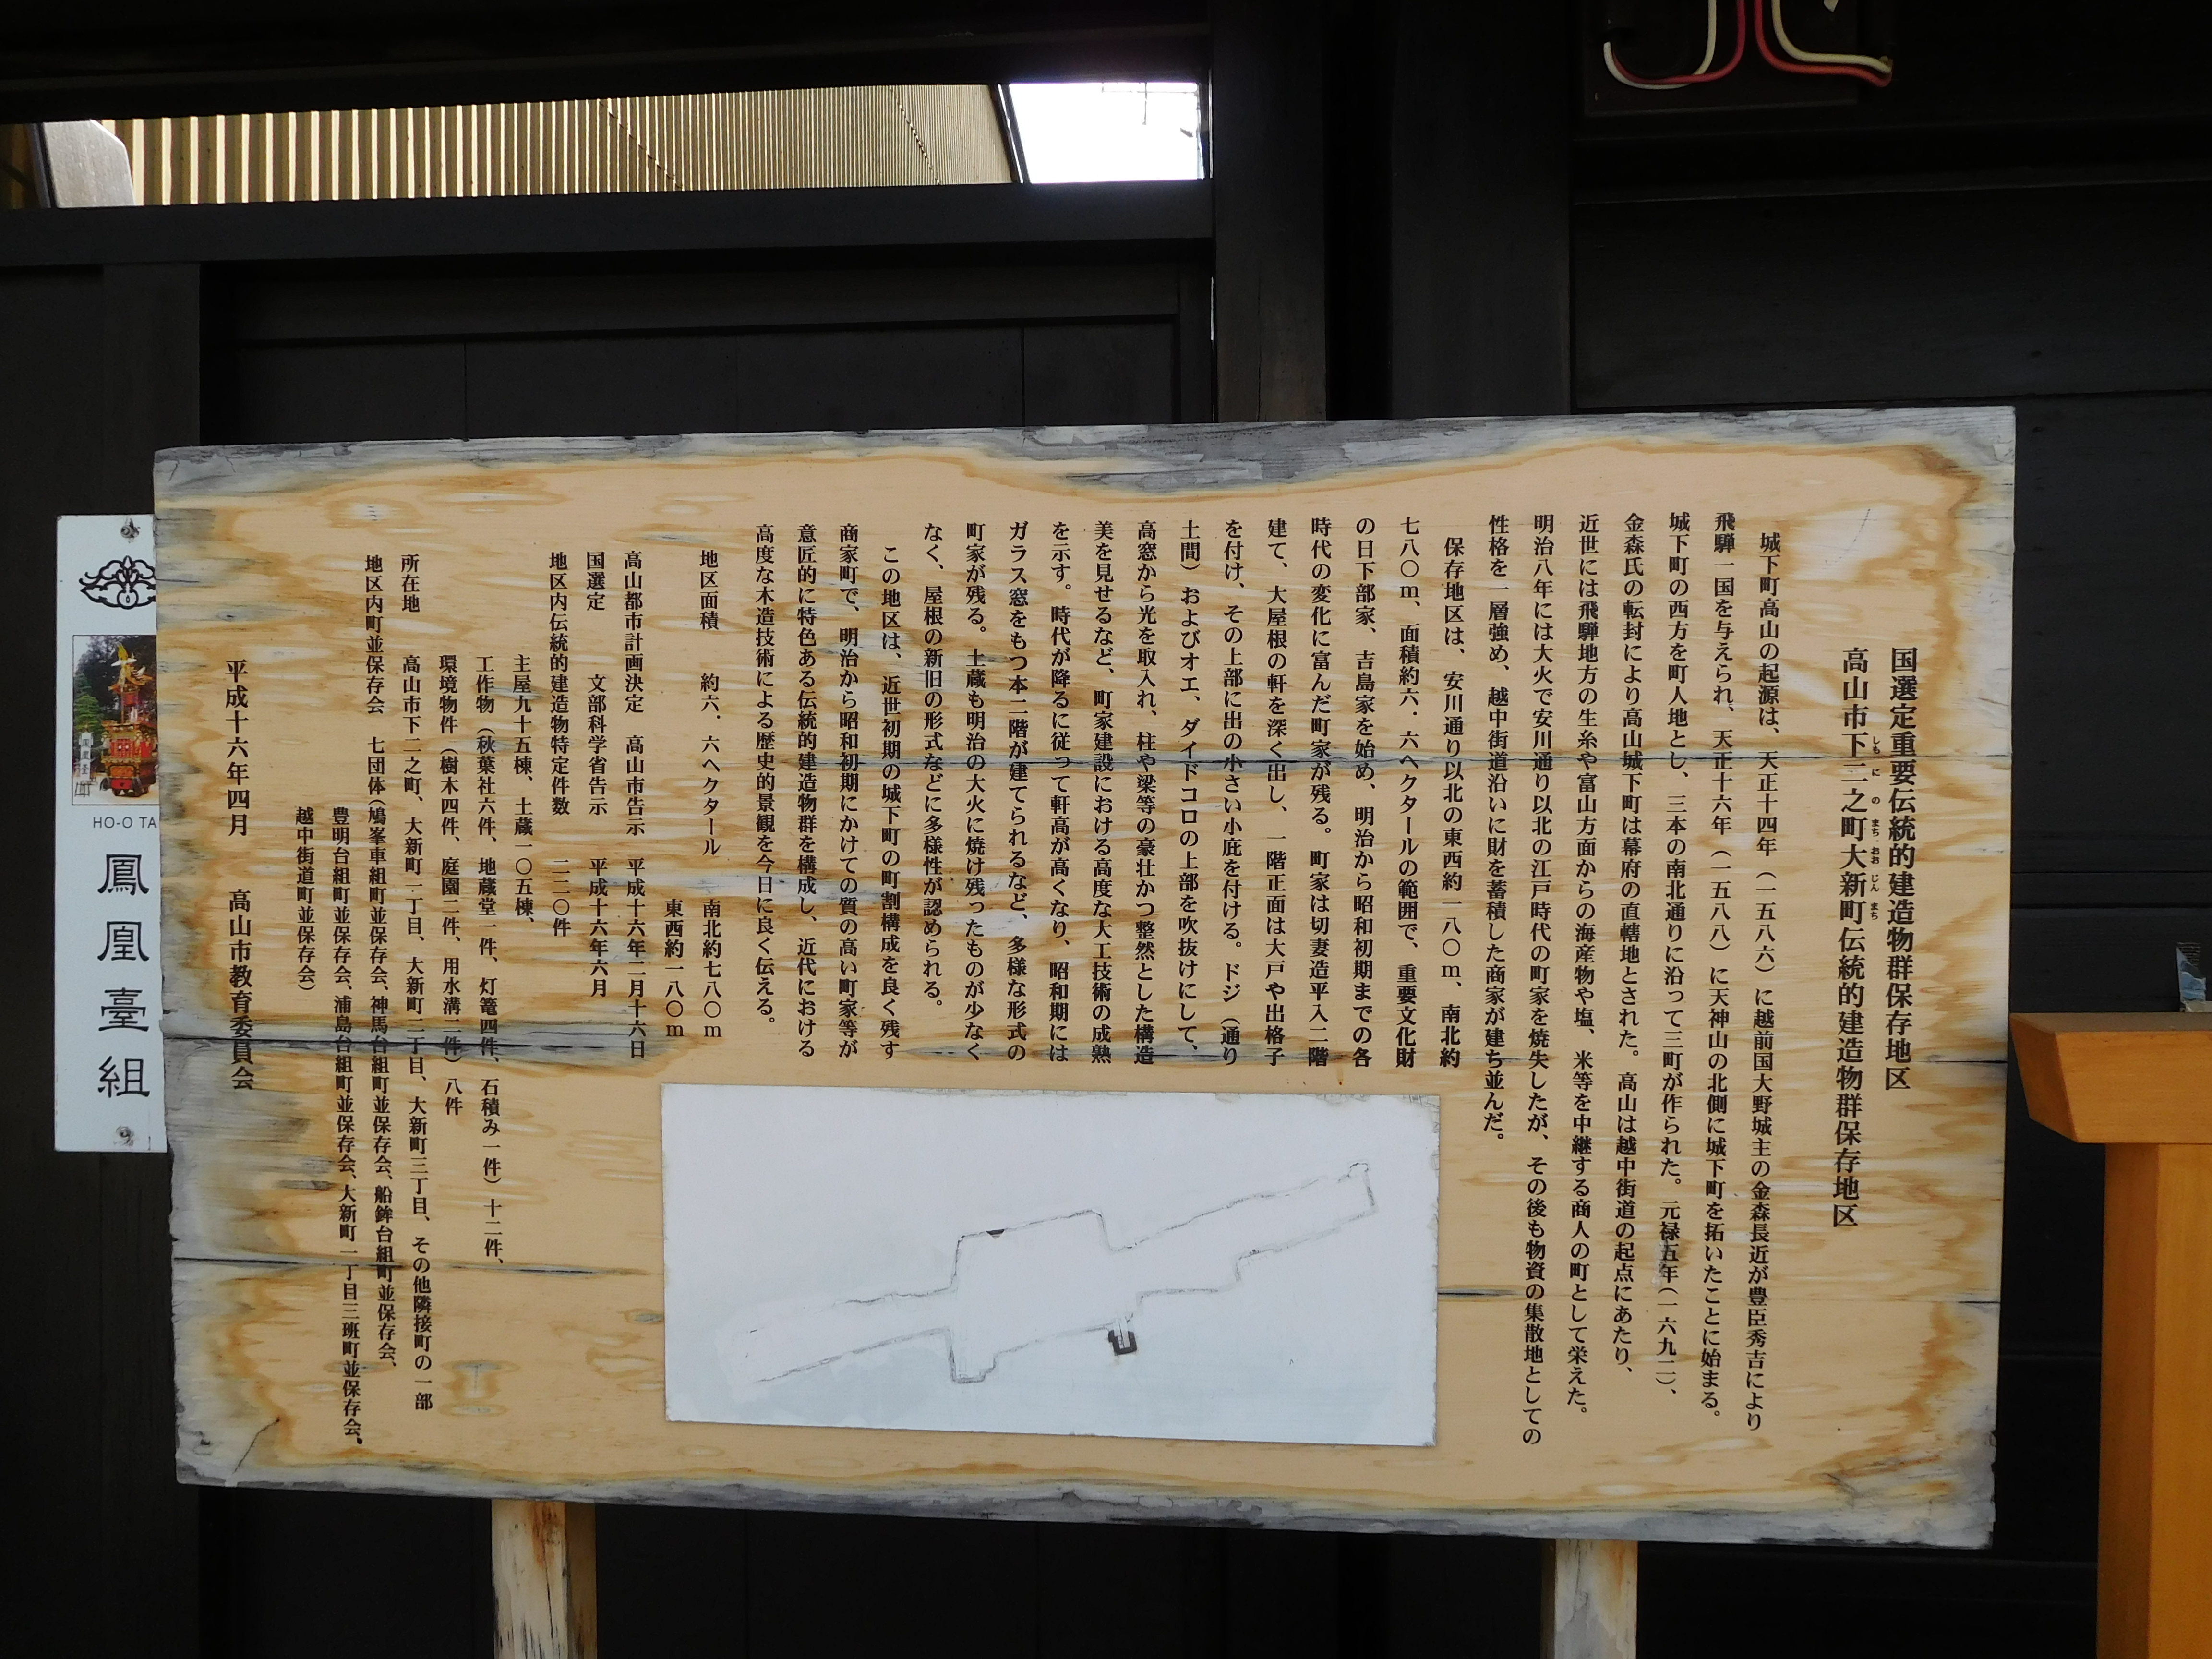 国選定重要伝統的建造物群保存地区
高山市下二之町大新町伝統的建造物群保存地区
しも に の まち おお じん まち
城下町高山の起源は、天正十四年（一五八六）に越前国大野城主の金森長近が豊臣秀吉により
飛騨一国を与えられ、天正十六年（一五八八）に天神山の北側に城下町を拓いたことに始まる。
城下町の西方を町人地とし、三本の南北通りに沿って三町が作られた。元禄五年（一六九二）、
金森氏の転封により高山城下町は幕府の直轄地とされた。高山は越中街道の起点にあたり、
近世には飛騨地方の生糸や富山方面からの海産物や塩、米等を中継する商人の町として栄えた。
明治八年には大火で安川通り以北の江戸時代の町家を焼失したが、その後も物資の集散地としての
性格を一層強め、越中街道沿いに財を蓄積した商家が建ち並んだ。
保存地区は、安川通り以北の東西約一八〇ｍ、南北約
七八〇ｍ、面積約六．六ヘクタールの範囲で、重要文化財
の日下部家、吉島家を始め、明治から昭和初期までの各
時代の変化に富んだ町家が残る。町家は切妻造平入二階
建て、大屋根の軒を深く出し、一階正面は大戸や出格子
を付け、その上部に出の小さい小庇を付ける。ドジ（通り
土間）およびオエ、ダイドコロの上部を吹抜けにして、
高窓から光を取入れ、柱や梁等の豪壮かつ整然とした構造
美を見せるなど、町家建設における高度な大工技術の成熟
を示す。時代が降るに従って軒高が高くなり、昭和期には
ガラス窓をもつ本二階が建てられるなど、多様な形式の
町家が残る。土蔵も明治の大火に焼け残ったものが少なく
なく、屋根の新旧の形式などに多様性が認められる。
この地区は、近世初期の城下町の町割構成を良く残す
商家町で、明治から昭和初期にかけての質の高い町家等が
意匠的に特色ある伝統的建造物群を構成し、近代における
高度な木造技術による歴史的景観を今日に良く伝える。
地区面積 約六．六ヘクタール 南北約七八〇ｍ
東西約一八〇ｍ
高山都市計画決定 高山市告示 平成十六年二月十六日
国選定 文部科学省告示 平成十六年六月
地区内伝統的建造物特定件数 二二〇件
主屋九十五棟、土蔵一〇五棟、
工作物（秋葉社六件、地蔵堂一件、灯篭四件、石積み一件）十二件、
環境物件（樹木四件、庭園二件、用水溝二件）八件
所在地 高山市下二之町、大新町一丁目、大新町二丁目、大新町三丁目、その他隣接町の一部
地区内町並保存会 七団体（鳩峯車組町並保存会、神馬台組町並保存会、船鉾台組町並保存会、
豊明台組町並保存会、浦島台組町並保存会、大新町一丁目三班町並保存会、
越中街道町並保存会）
平成十六年四月 高山市教育委員会
HO-O TA
鳳凰臺組